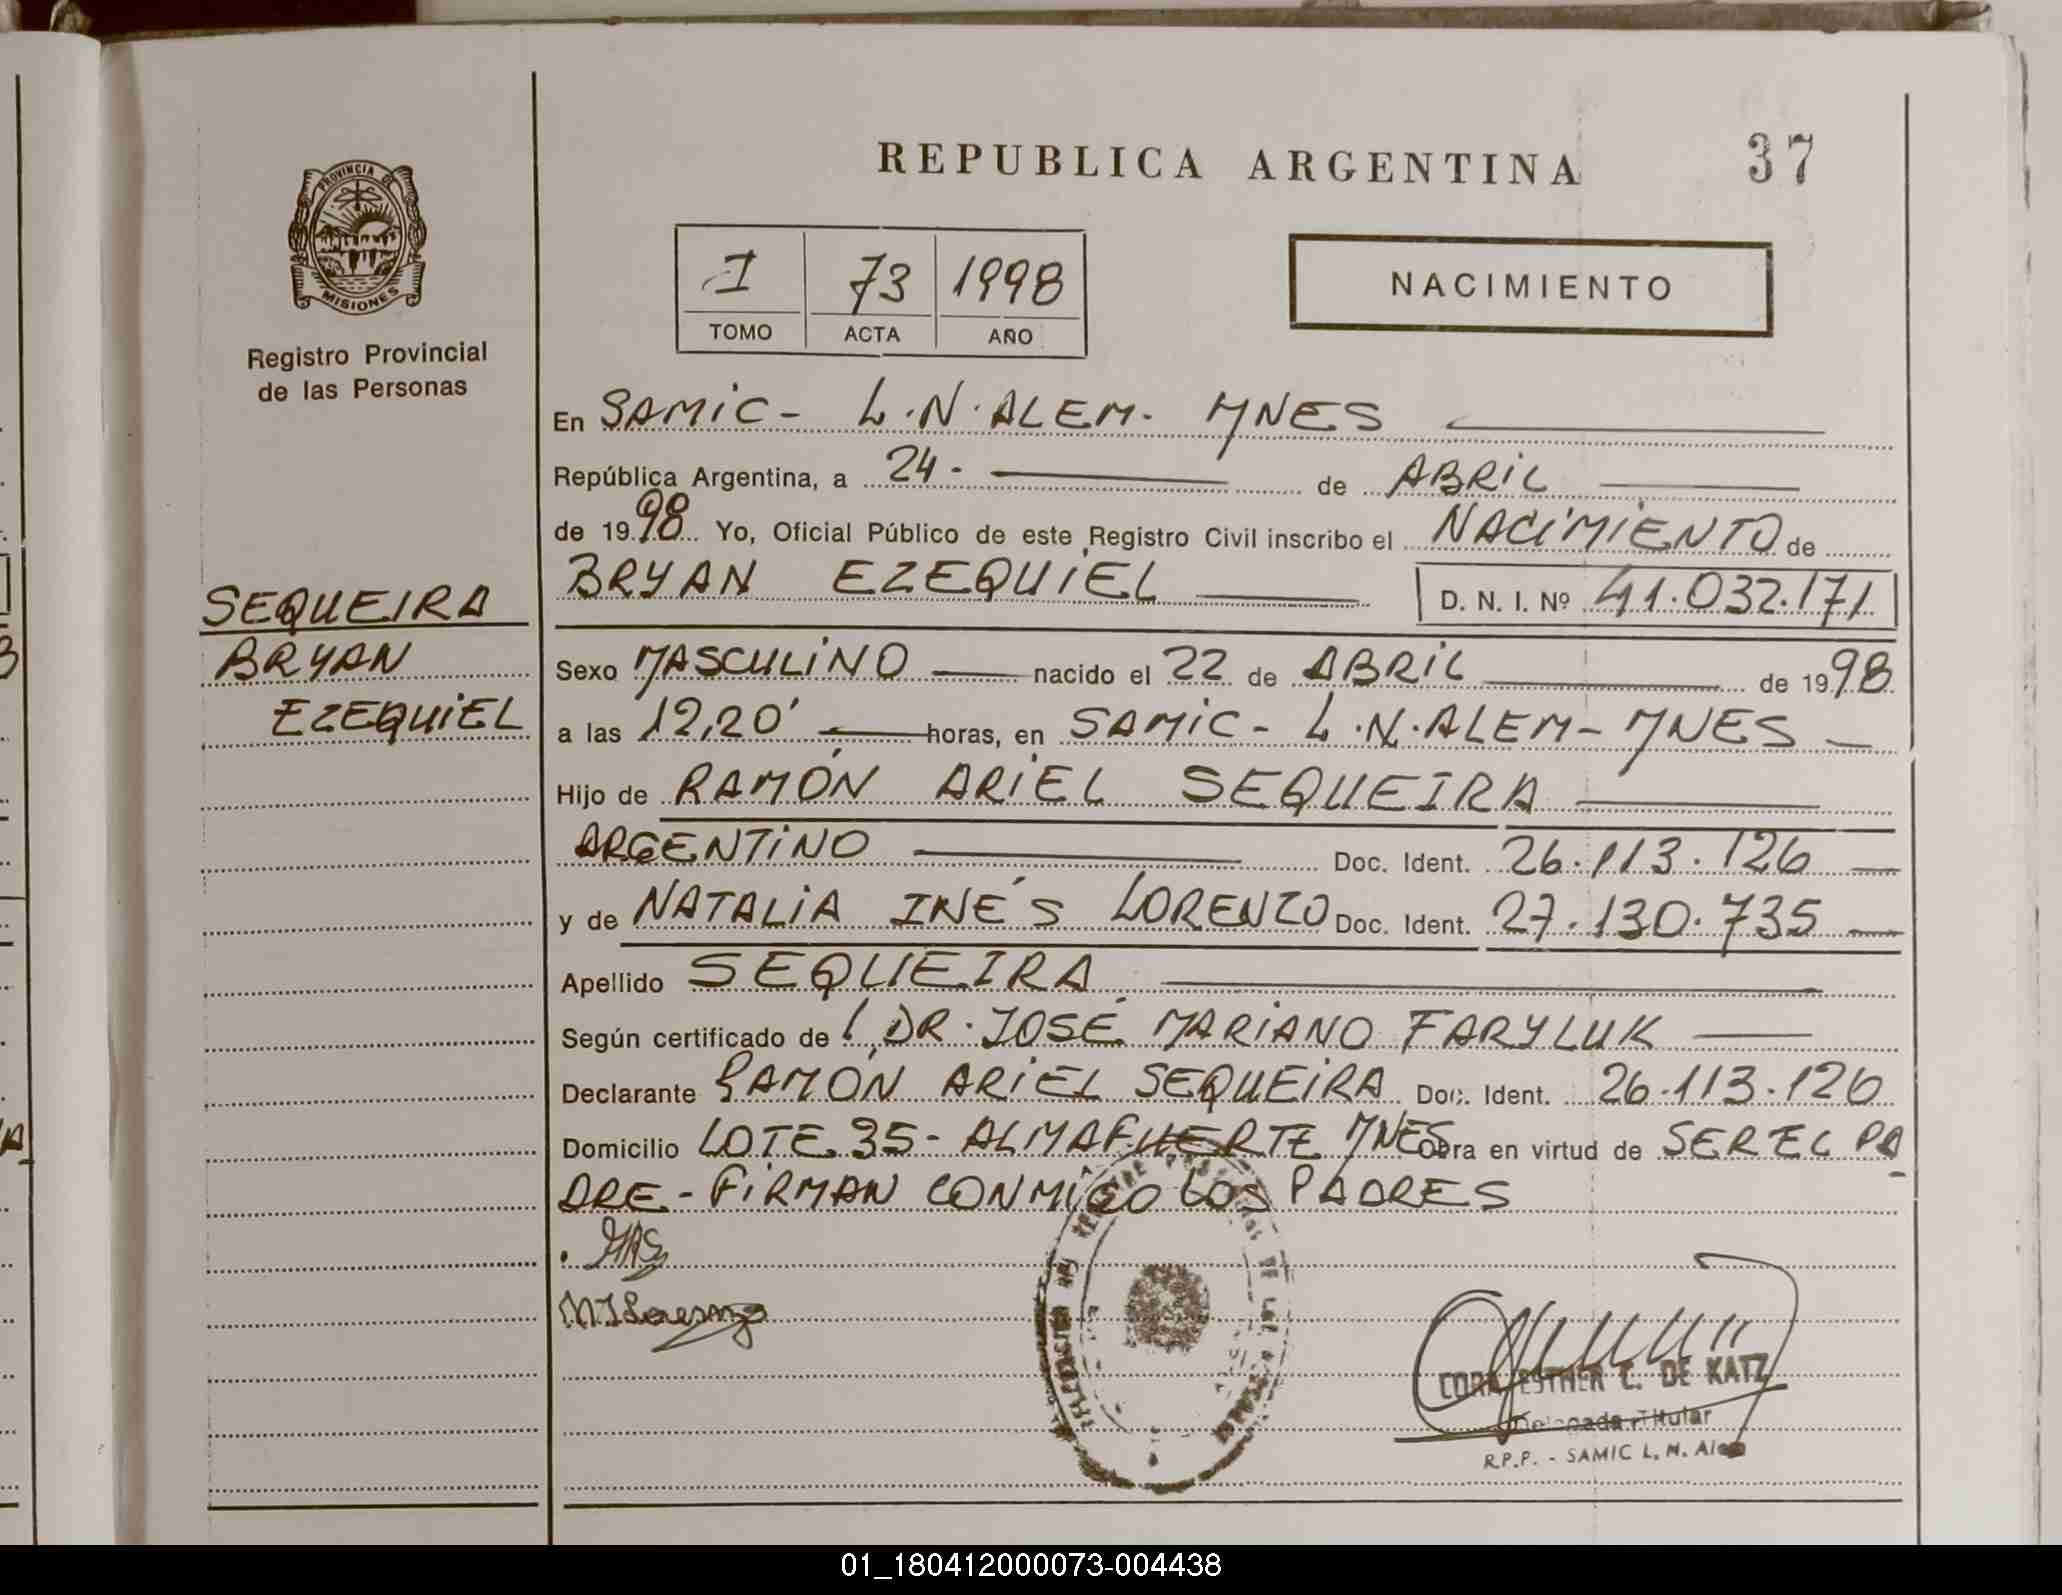 PROVINCIA DE
MISIONES
Registro Provincial
de las Personas
SEQUEIRA
BRYAN
EZEQUIEL
REPUBLICA ARGENTINA
37
I 73 1998
TOMO ACTA AÑO
NACIMIENTO
En SAMIC - L.N.ALEM. MNES
República Argentina, a 24 - de ABRIL
de 1998 Yo, Oficial Público de este Registro Civil inscribo el NACIMIENTO de
BRYAN EZEQUIEL D. N. I. Nº 41.032.171
Sexo MASCULINO nacido el 22 de ABRIL de 1998
a las 12,20' horas, en SAMIC - L.N.ALEM - MNES
Hijo de RAMÓN ARIEL SEQUEIRA
ARGENTINO Doc. Ident. 26.113.126
y de NATALIA INÉS LORENZO Doc. Ident. 27.130.735
Apellido SEQUEIRA
Según certificado de DR. JOSÉ MARIANO FARYLUK
Declarante RAMÓN ARIEL SEQUEIRA Doc. Ident. 26.113.126
Domicilio LOTE 35 - ALMAFUERTE MNES Obra en virtud de SER EL PA
DRE - FIRMAN CONMIGO LOS PADRES
CORA ESTHER C. DE KATZ
Delegada Titular
R.P.P. - SAMIC L. N. Alem
01_180412000073-004438